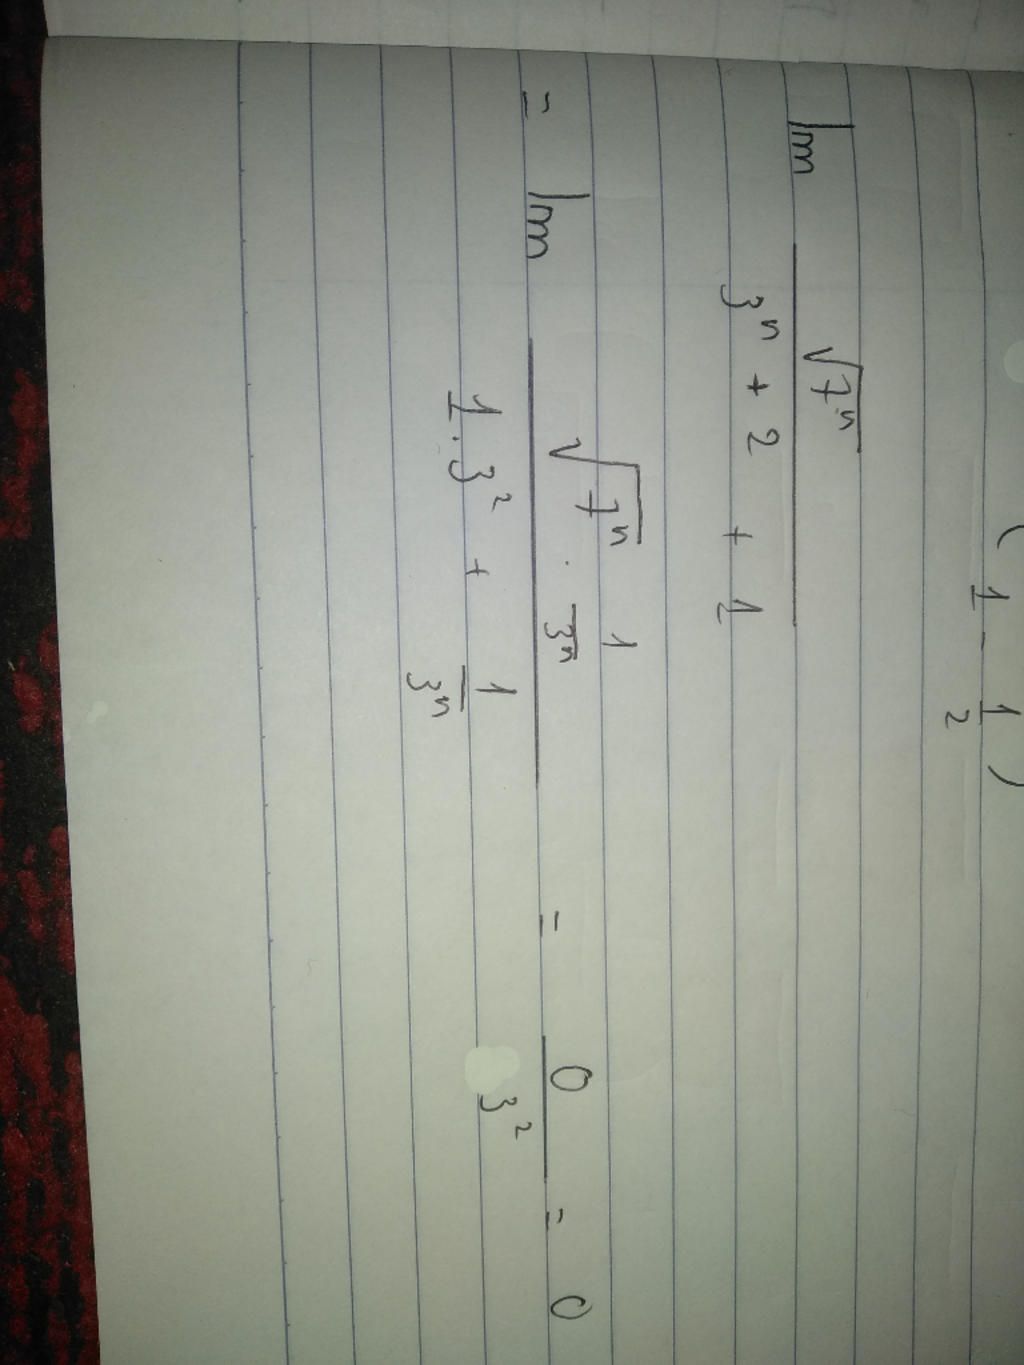 ( 1 - 1/2 )
lim √(7^n) / (3^(n + 2) + 1)
= lim (√(7^n) · 1/3^n) / (1 · 3^2 + 1/3^n) = 0/3^2 = 0